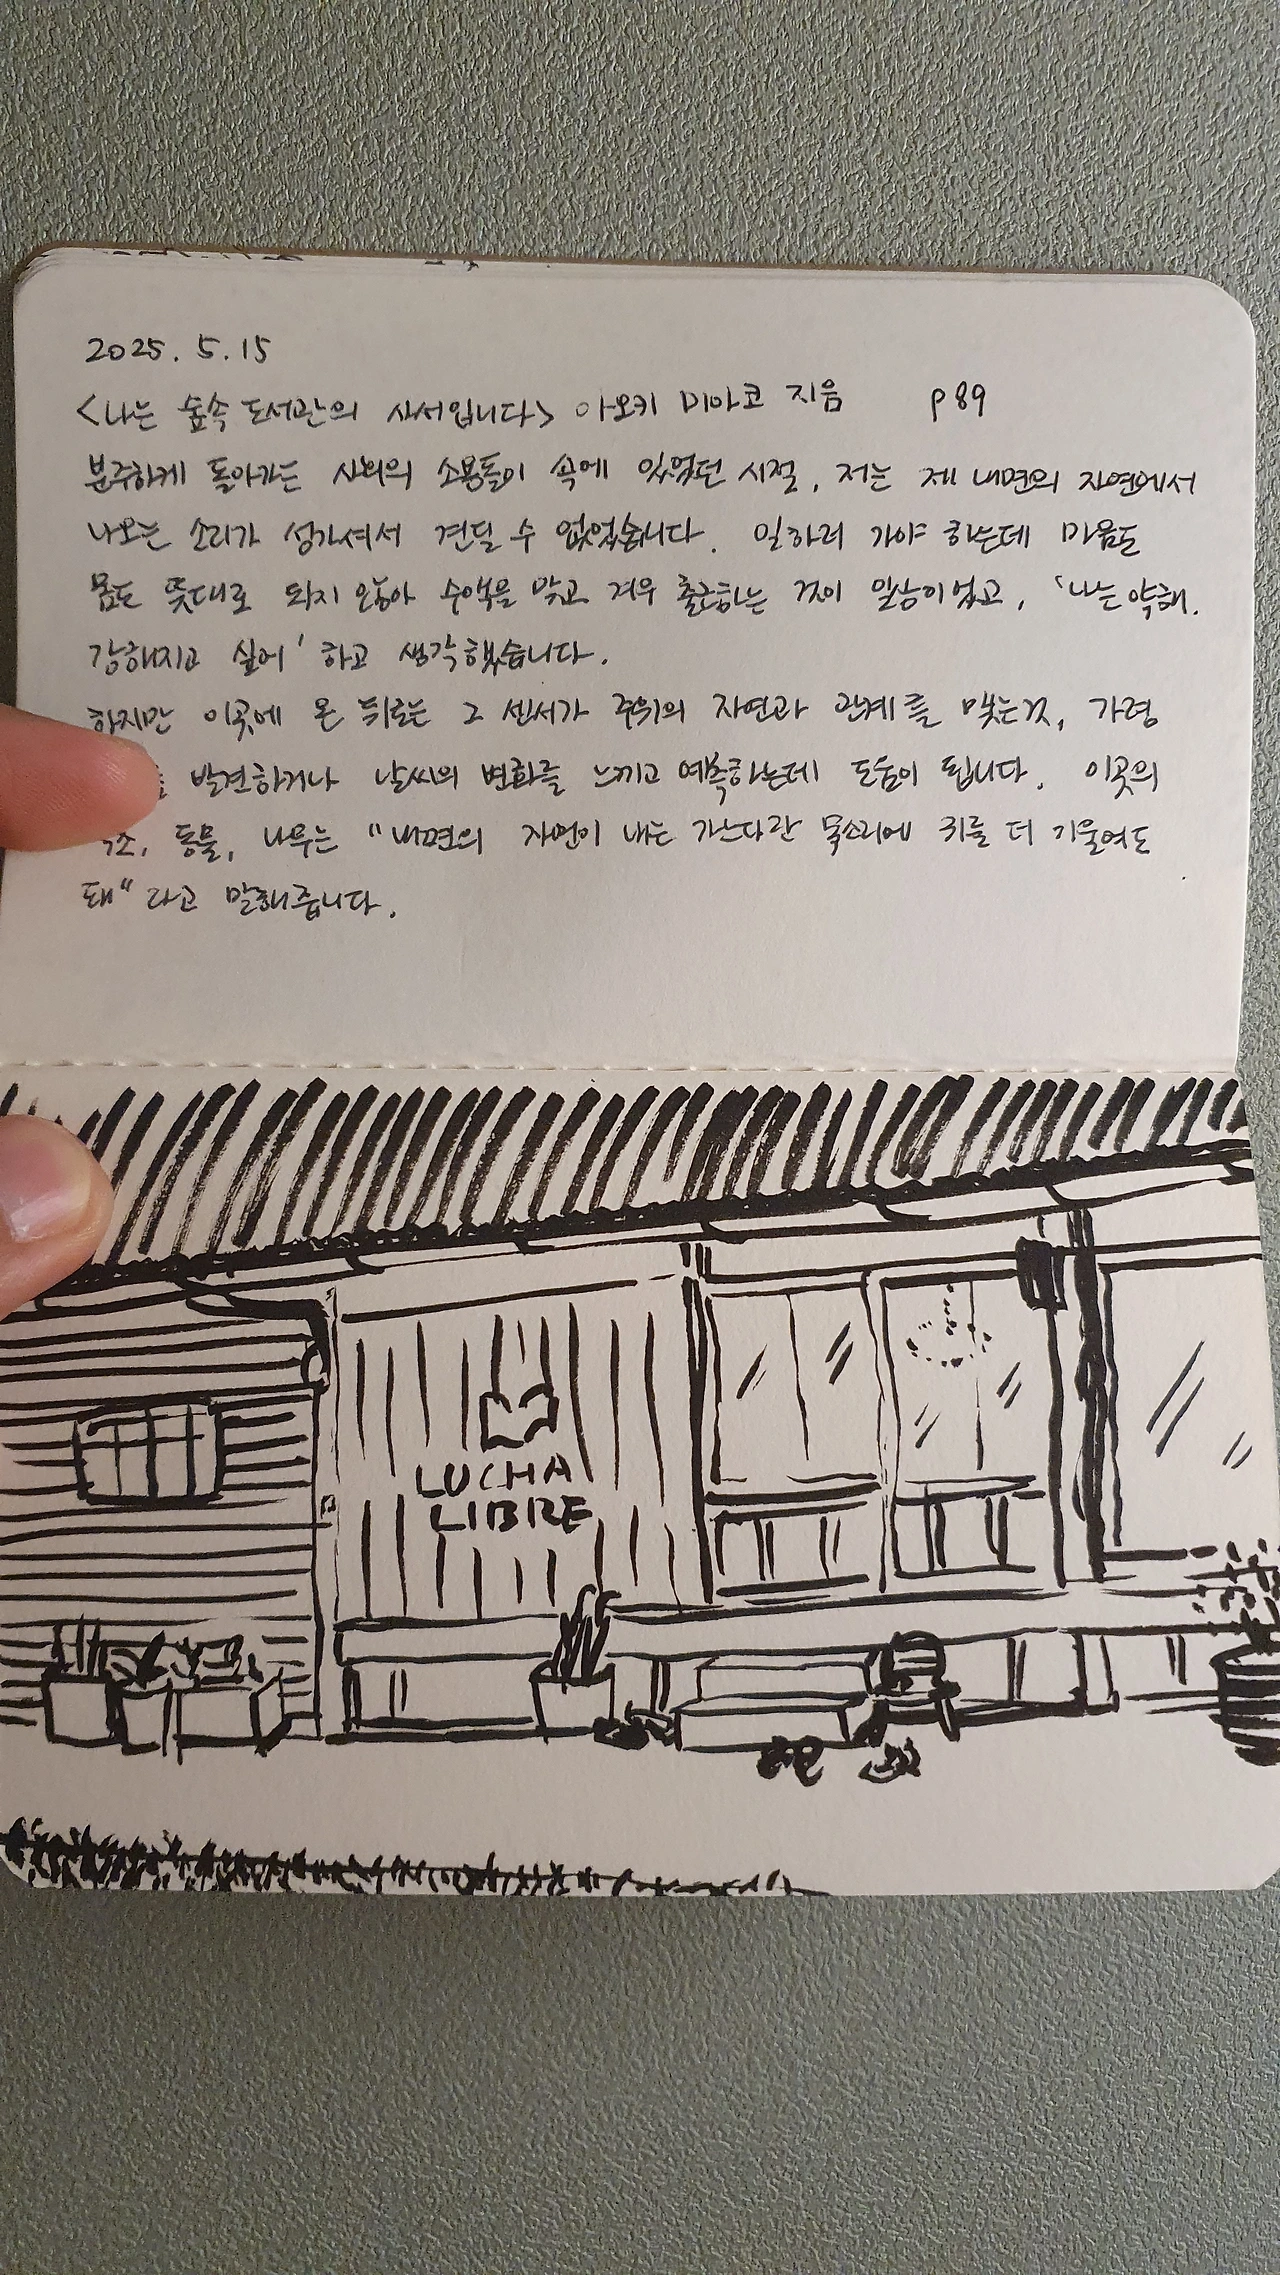 2025. 5. 15
<나는 숲속 도서관의 사서입니다> 아오키 미아코 지음 p89
분주하게 돌아가는 사회의 소용돌이 속에 있었던 시절, 저는 제 내면의 자연에서
나오는 소리가 성가셔서 견딜 수 없었습니다. 일하러 가야 하는데 마음도
몸도 뜻대로 되지 않아 수액을 맞고 겨우 출근하는 것이 일상이었고, '나는 약해.
강해지고 싶어' 하고 생각했습니다.
하지만 이곳에 온 뒤로는 그 센서가 주위의 자연과 관계를 맺는것, 가령
발견하거나 날씨의 변화를 느끼고 예측하는데 도움이 됩니다. 이곳의
동물, 나무는 "내면의 자연이 내는 가느다란 목소리에 귀를 더 기울여도
돼" 라고 말해줍니다.
LUCHA
LIBRE